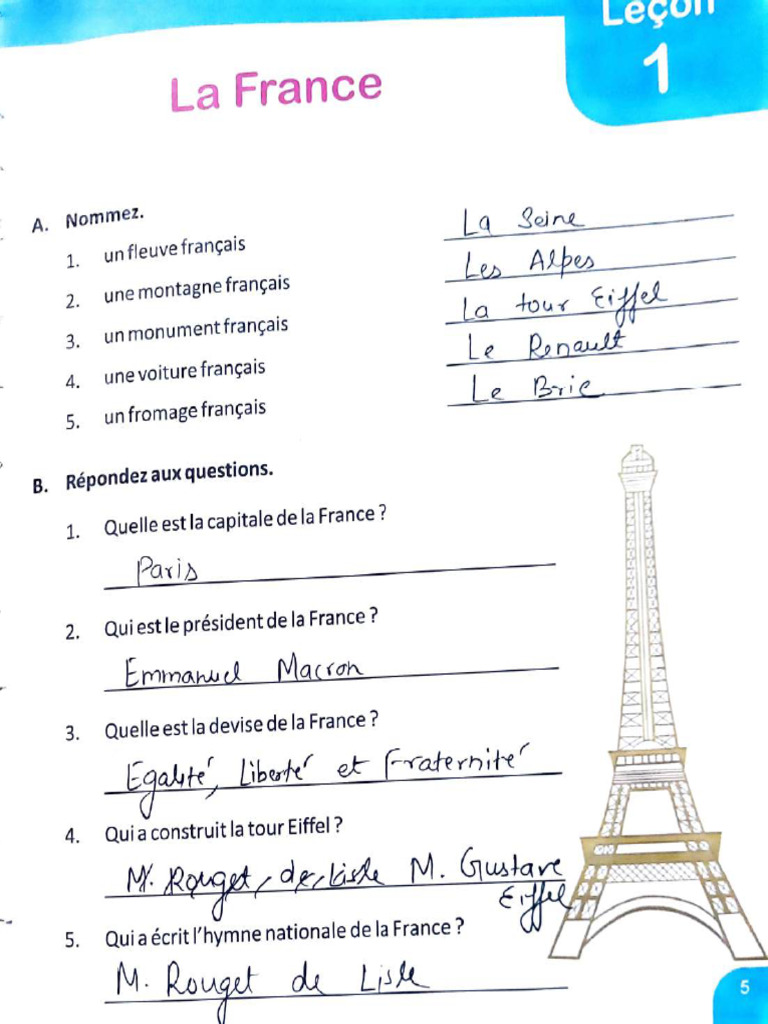 Leçon
1
La France
A. Nommez.
1. un fleuve français La Seine
2. une montagne français Les Alpes
3. un monument français La tour Eiffel
4. une voiture français Le Renault
5. un fromage français Le Brie
B. Répondez aux questions.
1. Quelle est la capitale de la France ?
Paris
2. Qui est le président de la France ?
Emmanuel Macron
3. Quelle est la devise de la France ?
Egalité, Liberté et Fraternité
4. Qui a construit la tour Eiffel ?
M. Rouget de Lisle M. Gustave
Eiffel
5. Qui a écrit l'hymne nationale de la France ?
M. Rouget de Lisle
5